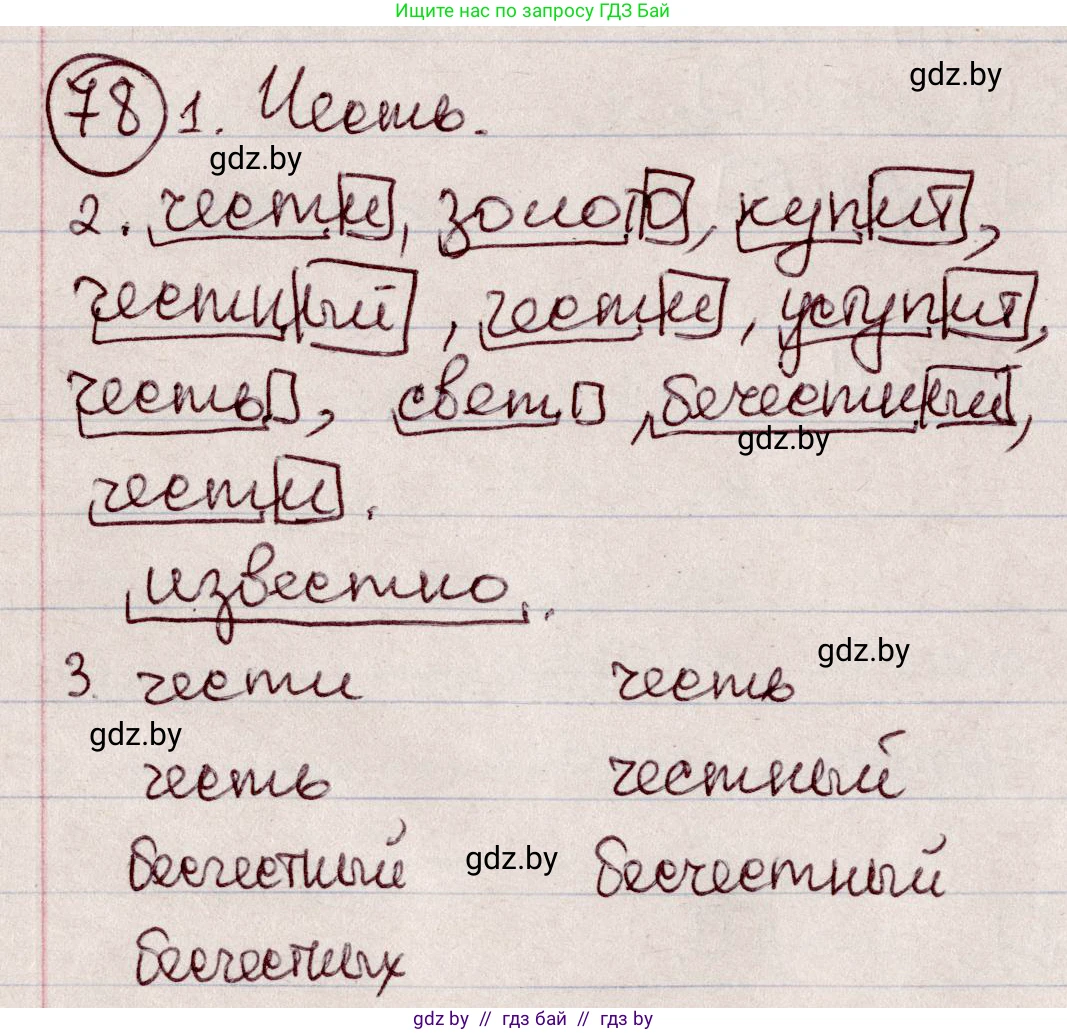 Ищите нас по запросу ГДЗ Бай
gdz.by
78 1. Честь.
gdz.by
2. чести, золото, купит,
честный, чести, уступит,
честь, свет, бечестный,
gdz.by
чести.
известно.
gdz.by
3. чести честь
gdz.by
честь честный
бесчестный gdz.by бесчестный
бесчестных
gdz by // гдз бай // гдз by